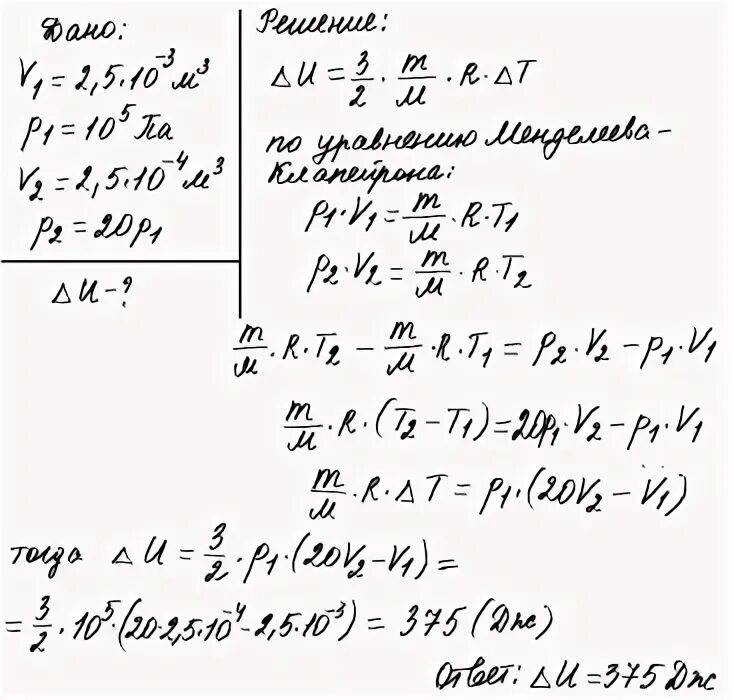 Дано:
V₁ = 2,5·10⁻³ м³
p₁ = 10⁵ Па
V₂ = 2,5·10⁻⁴ м³
p₂ = 20p₁
ΔU - ?
Решение:
ΔU = 3/2 · m/M · R · ΔT
по уравнению Менделеева-
Клапейрона:
p₁·V₁ = m/M · R·T₁
p₂·V₂ = m/M · R·T₂
m/M · R·T₂ – m/M · R·T₁ = p₂·V₂ – p₁·V₁
m/M · R · (T₂ – T₁) = 20p₁·V₂ – p₁·V₁
m/M · R · ΔT = p₁·(20V₂ – V₁)
тогда ΔU = 3/2 · p₁·(20V₂ – V₁) =
= 3/2 · 10⁵·(20·2,5·10⁻⁴ – 2,5·10⁻³) = 375 (Дж)
Ответ: ΔU = 375 Дж